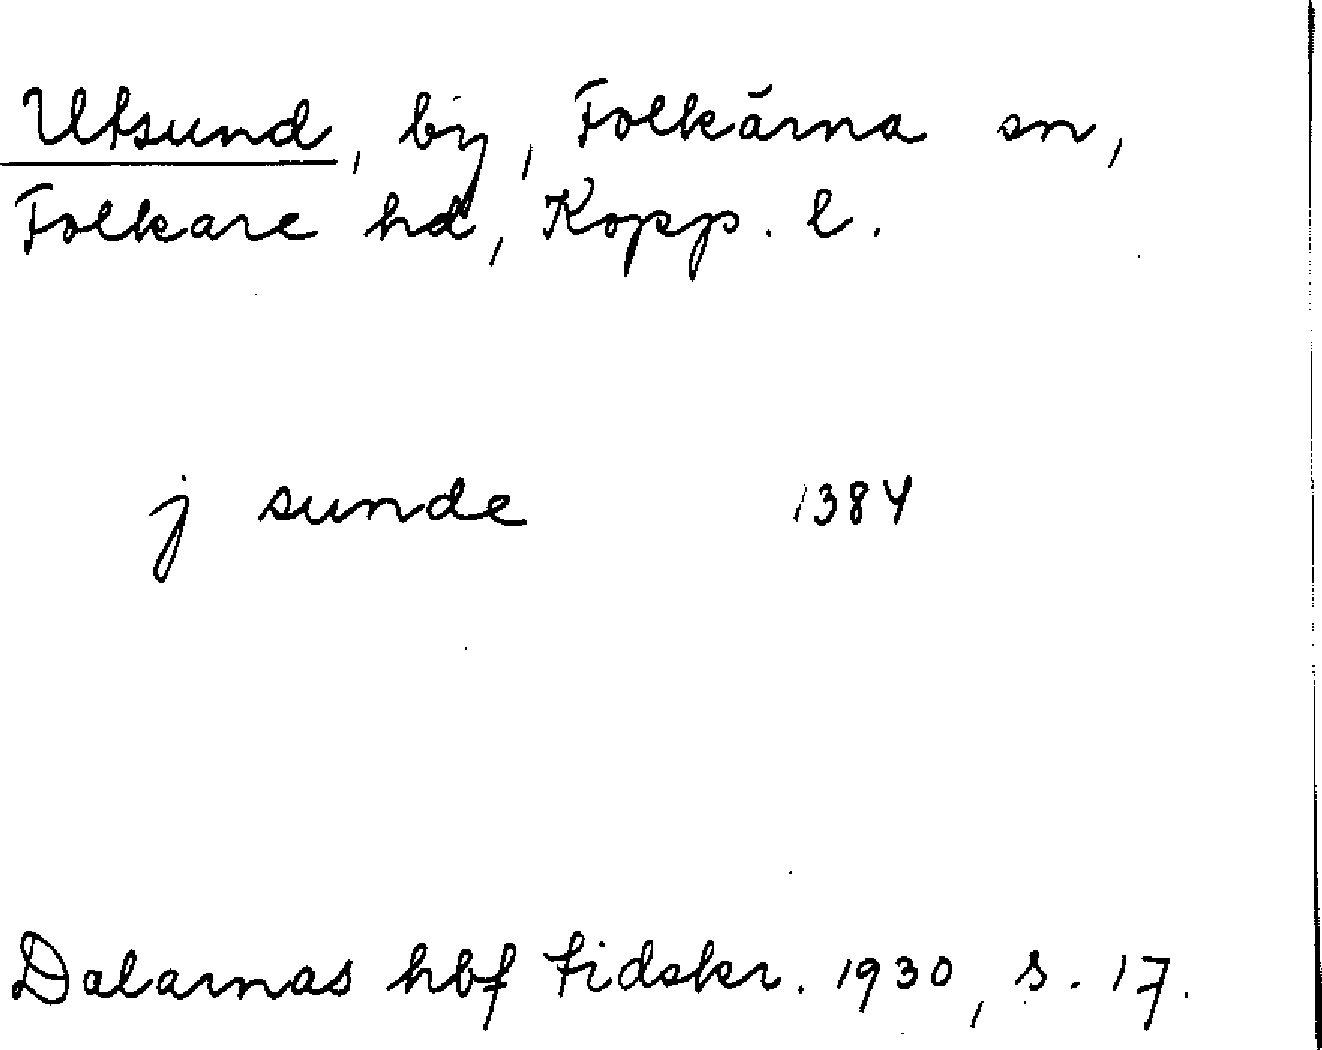 Utsund, by, Folkärna sn,
Folkare hd, Kopp. l.
j sunde 1384
Dalarnas hbf tidskr. 1930, s. 17.